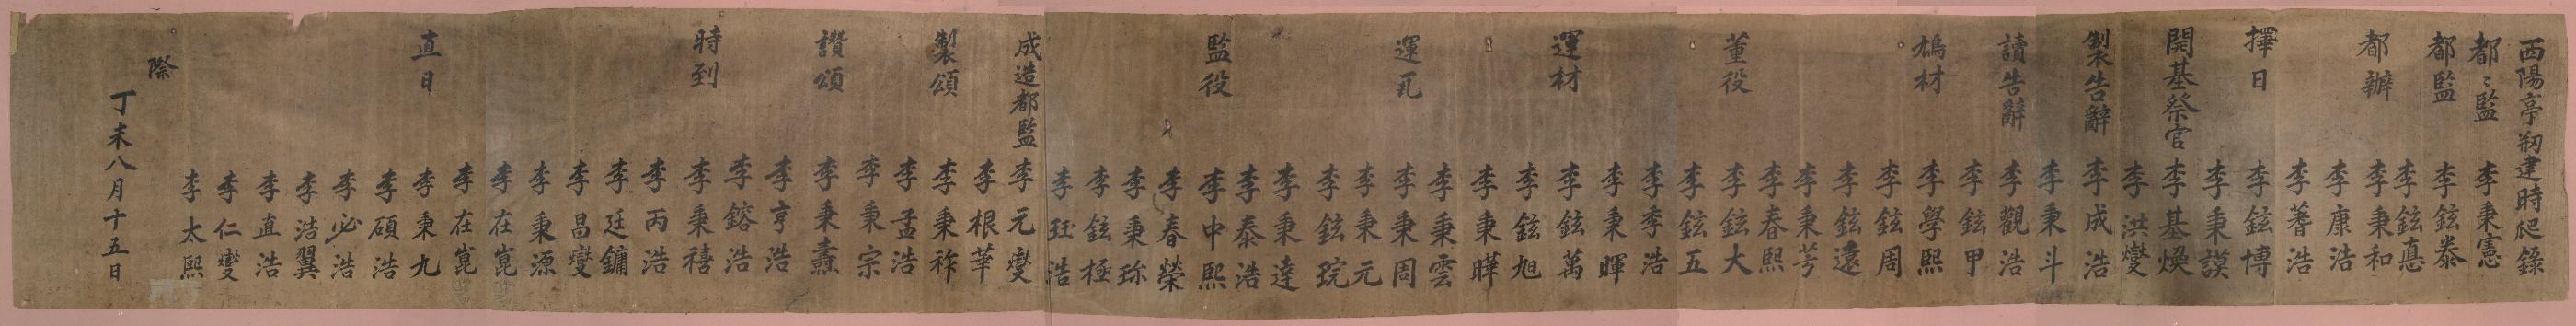 西陽亭刱建時爬錄
都〻監 李秉憲
都監 李鉉泰
李鉉悳
都辦 李秉和
李康浩
李蓍浩
擇日 李鉉博
李秉謨
開基祭官 李基煥
李洪燮
製告辭 李成浩
李秉斗
讀告辭 李觀浩
李鉉甲
鳩材 李學熙
李鉉周
李鉉遠
李秉芳
李春熙
董役 李鉉大
李鉉五
李季浩
李秉暉
運材 李鉉萬
李鉉旭
李秉曄
李秉雲
運瓦 李秉周
李秉元
李鉉琓
李秉達
李泰浩
監役 李中熙
李春榮
李秉珎
李鉉極
李珏浩
成造都監 李元燮
李根華
製頌 李秉祚
李孟浩
李秉宗
讚頌 李秉燾
李亨浩
李鎔浩
時到 李秉禧
李丙浩
李廷鏞
李昌燮
李秉源
李在崑
李在崑
直日 李秉九
李碩浩
李必浩
李浩翼
李直浩
李仁燮
李太熙
際
丁未八月十五日